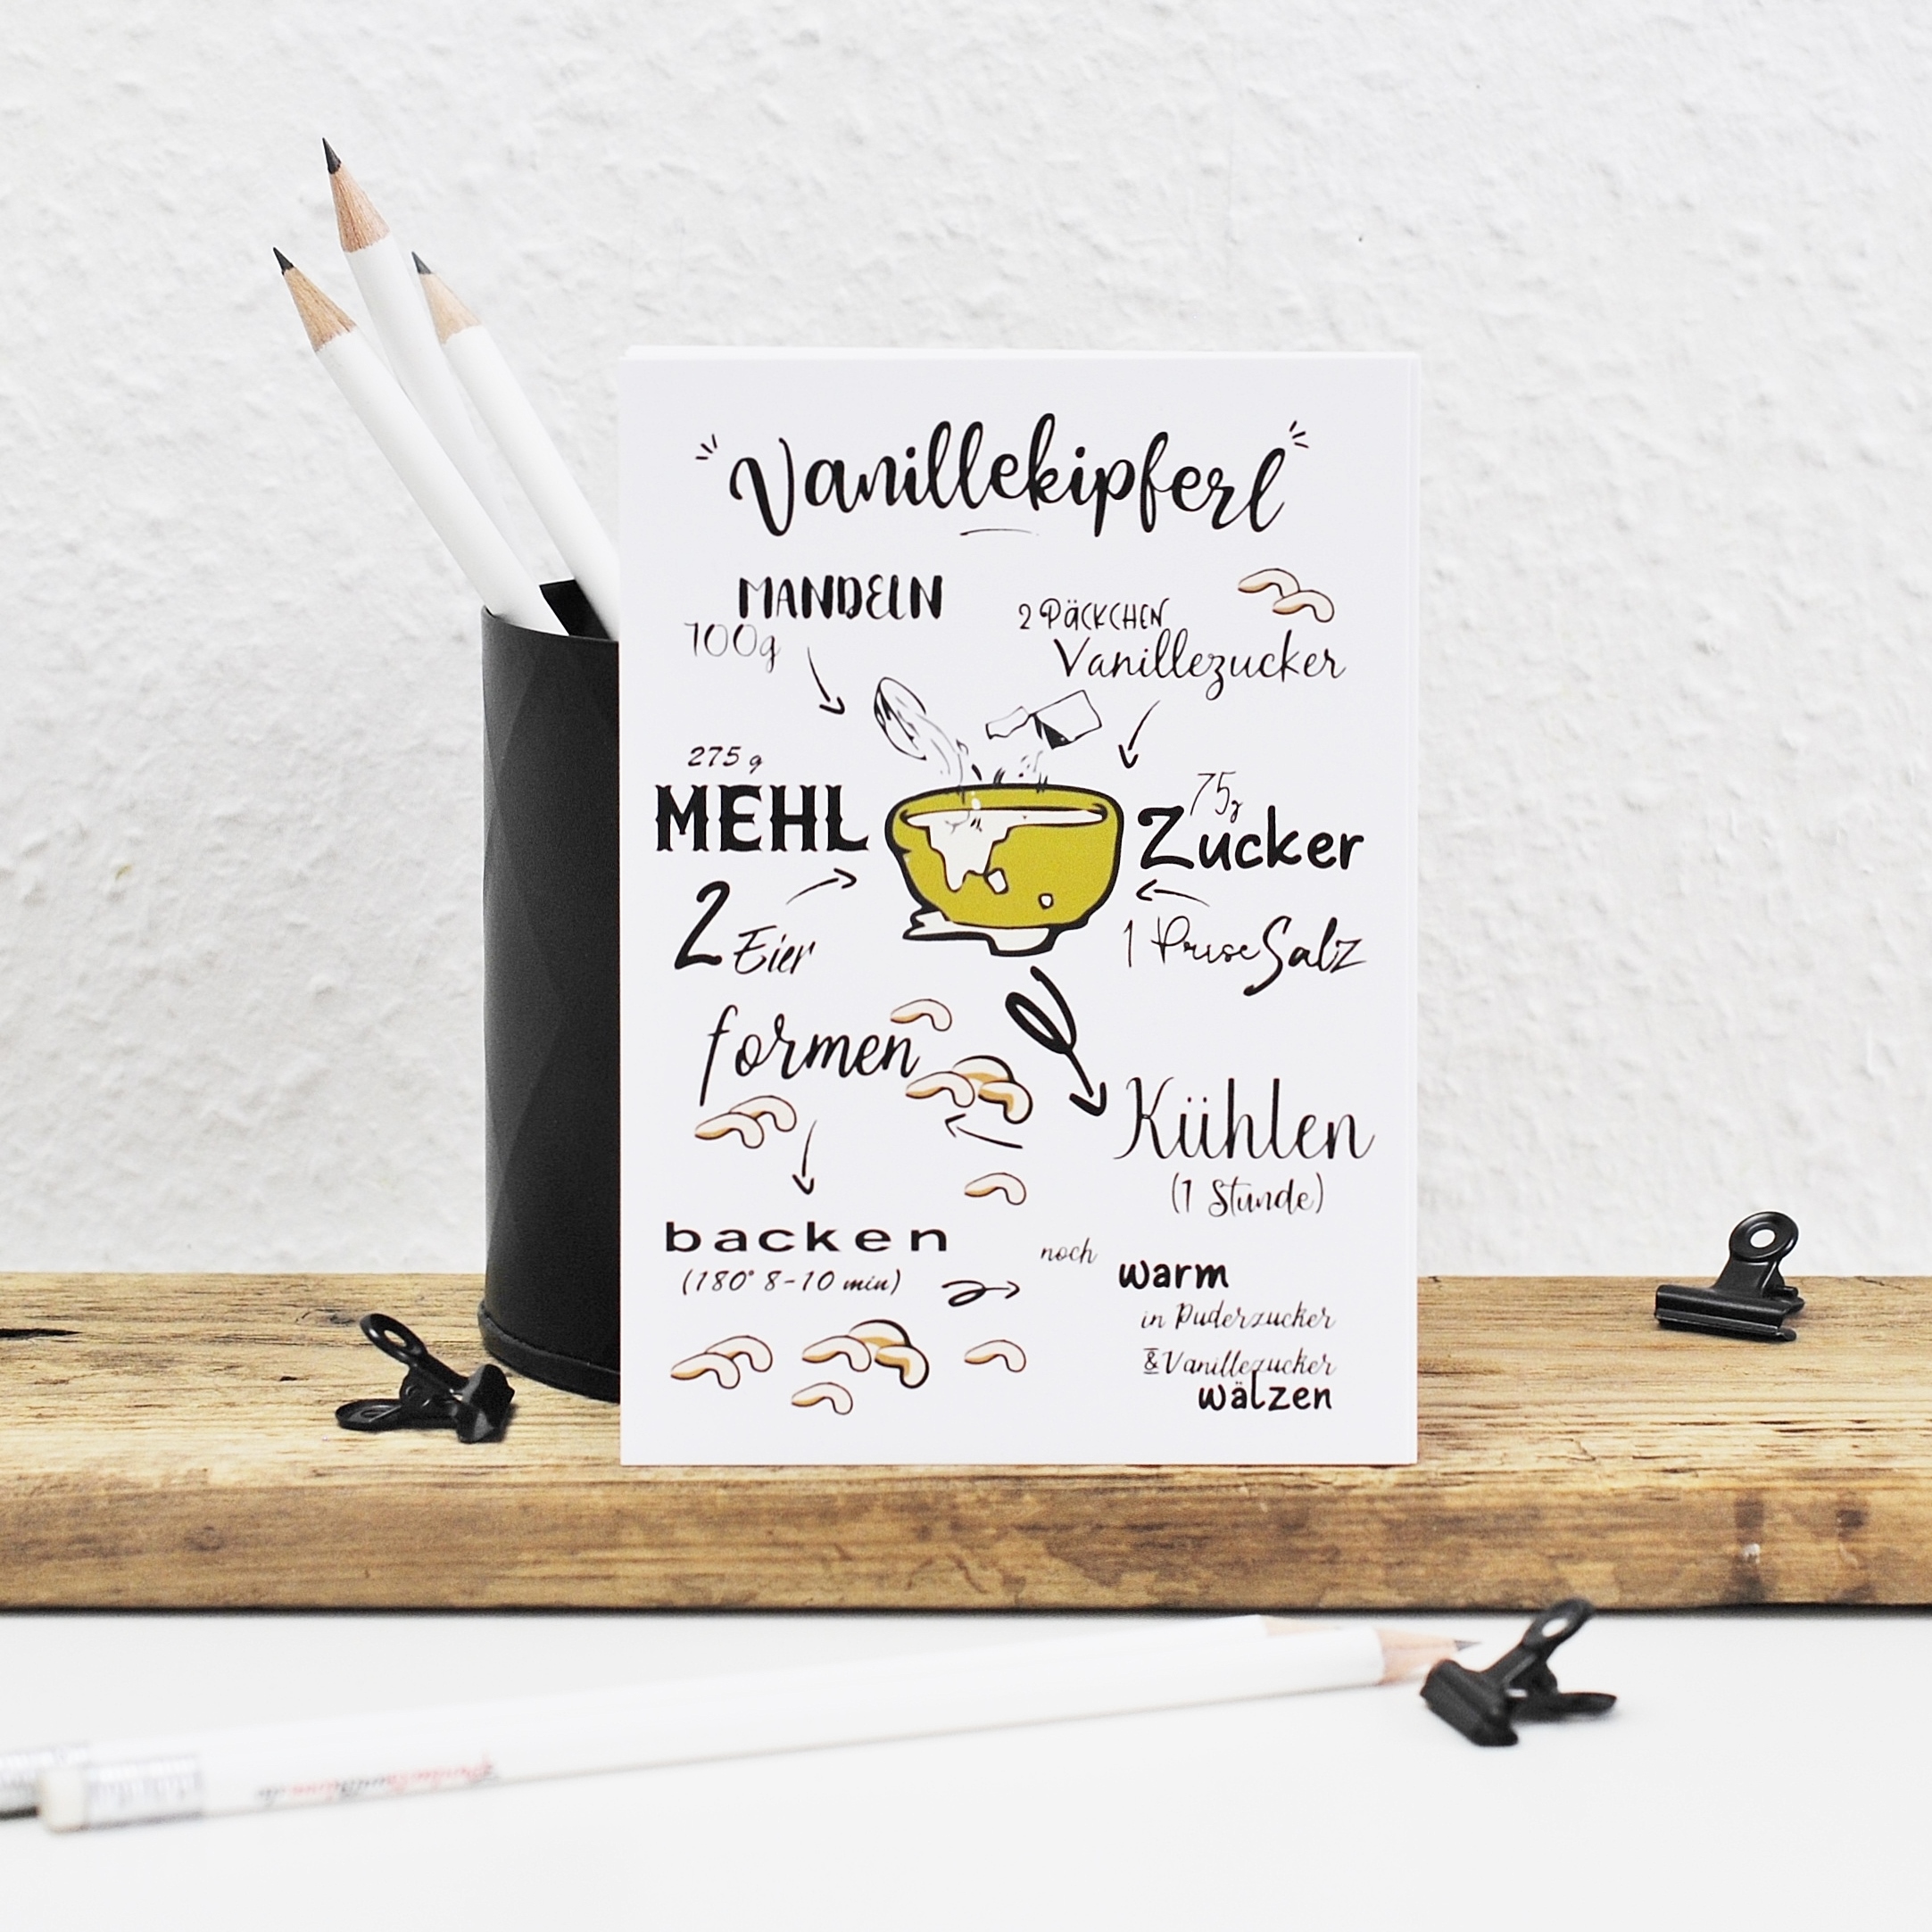 Vanillekipferl
MANDELN
100g
2 PÄCKCHEN
Vanillezucker
275 g
MEHL
75g
Zucker
2 Eier
1 Prise Salz
formen
Kühlen
(1 Stunde)
backen
(180° 8-10 min)
noch
warm
in Puderzucker
& Vanillezucker
wälzen